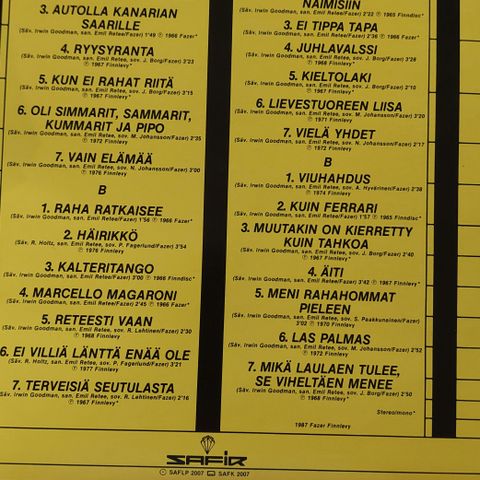 3. AUTOLLA KANARIAN
SAARILLE
(Säv. Irwin Goodman, san. Emil Retee/Fazer) 1'49 Ⓟ 1966 Fazer*
4. RYYSYRANTA
(Säv. Irwin Goodman, san. Emil Retee, sov. J. Borg/Fazer) 3'23
Ⓟ 1967 Finnlevy*
5. KUN EI RAHAT RIITÄ
(Säv. Irwin Goodman, san. Emil Retee, sov. J. Borg/Fazer) 3'15
Ⓟ 1967 Finnlevy*
6. OLI SIMMARIT, SAMMARIT,
KUMMARIT JA PIPO
(Säv. Irwin Goodman, san. Emil Retee, sov. M. Johansson/Fazer) 2'35
Ⓟ 1972 Finnlevy
7. VAIN ELÄMÄÄ
(Säv. Irwin Goodman, san. Emil Retee, sov. N. Johansson/Fazer) 3'00
Ⓟ 1976 Finnlevy
B
1. RAHA RATKAISEE
(Säv. Irwin Goodman, san. Emil Retee/Fazer) 1'56 Ⓟ 1966 Fazer*
2. HÄIRIKKÖ
(Säv. R. Holtz, san. Emil Retee, sov. P. Fagerlund/Fazer) 3'54
Ⓟ 1976 Finnlevy
3. KALTERITANGO
(Säv. Irwin Goodman, san. Emil Retee/Fazer) 3'00 Ⓟ 1966 Finndisc*
4. MARCELLO MAGARONI
(Säv. Irwin Goodman, san. Emil Retee/Fazer) 2'45 Ⓟ 1966 Fazer*
5. RETEESTI VAAN
(Säv. Irwin Goodman, san. Emil Retee, sov. R. Lehtinen/Fazer) 2'50
Ⓟ 1968 Finnlevy
6. EI VILLIÄ LÄNTTÄ ENÄÄ OLE
(Säv. R. Holtz, san. Emil Retee, sov. P. Fagerlund/Fazer) 3'21
Ⓟ 1977 Finnlevy
7. TERVEISIÄ SEUTULASTA
(Säv. Irwin Goodman, san. Emil Retee, sov. R. Lehtinen/Fazer) 2'16
Ⓟ 1967 Finnlevy*
NAIMISIIN
(Säv. Irwin Goodman, san. Emil Retee/Fazer) 2'22 Ⓟ 1965 Finndisc*
3. EI TIPPA TAPA
(Säv. Irwin Goodman, san. Emil Retee/Fazer) 2'36 Ⓟ 1966 Fazer*
4. JUHLAVALSSI
(Säv. Irwin Goodman, san. Emil Retee, sov. J. Borg/Fazer) 3'28
Ⓟ 1968 Finnlevy*
5. KIELTOLAKI
(Säv. Irwin Goodman, san. Emil Retee, sov. J. Borg/Fazer) 2'10
Ⓟ 1967 Finnlevy*
6. LIEVESTUOREEN LIISA
(Säv. Irwin Goodman, san. Emil Retee, sov. M. Johansson/Fazer) 3'20
Ⓟ 1971 Finnlevy
7. VIELÄ YHDET
(Säv. Irwin Goodman, san. Emil Retee, sov. N. Johansson/Fazer) 2'17
Ⓟ 1972 Finnlevy
B
1. VIUHAHDUS
(Säv. Irwin Goodman, san. Emil Retee, sov. A. Hyvärinen/Fazer) 2'38
Ⓟ 1974 Finnlevy
2. KUIN FERRARI
(Säv. Irwin Goodman, san. Emil Retee/Fazer) 1'57 Ⓟ 1965 Finndisc*
3. MUUTAKIN ON KIERRETTY
KUIN TAHKOA
(Säv. Irwin Goodman, san. Emil Retee, sov. J. Borg/Fazer) 2'40
Ⓟ 1967 Finnlevy*
4. ÄITI
(Säv. Irwin Goodman, san. Emil Retee/Fazer) 3'42 Ⓟ 1967 Finnlevy*
5. MENI RAHAHOMMAT
PIELEEN
(Säv. Irwin Goodman, san. Emil Retee, sov. S. Paakkunainen/Fazer)
3'02 Ⓟ 1970 Finnlevy
6. LAS PALMAS
(Säv. Irwin Goodman, san. Emil Retee, sov. M. Johansson/Fazer) 2'52
Ⓟ 1972 Finnlevy
7. MIKÄ LAULAEN TULEE,
SE VIHELTÄEN MENEE
(Säv. Irwin Goodman, san. Emil Retee, sov. J. Borg/Fazer) 2'50
Ⓟ 1968 Finnlevy*
Stereo/mono*
1987 Fazer Finnlevy
SAFIR
SAFLP 2007 SAFK 2007